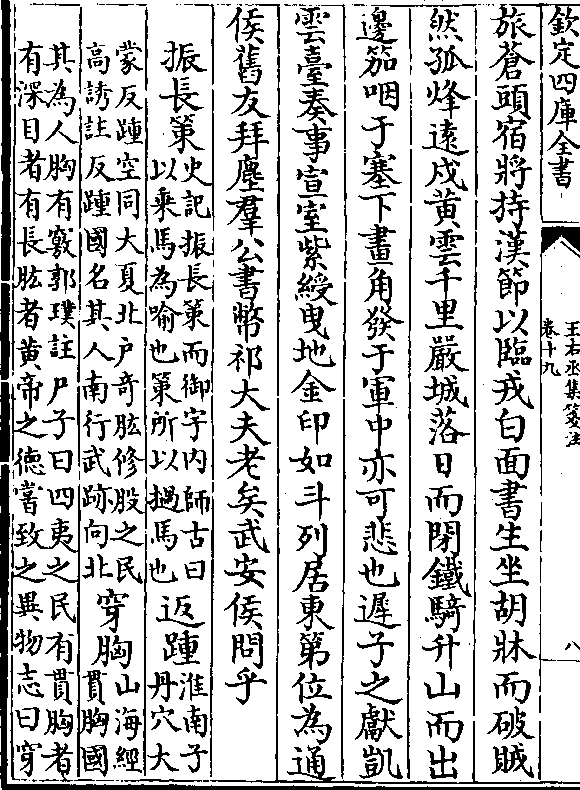 欽定四庫全書
王右丞集箋注
卷十九
八
旅蒼頭宿將持漢節以臨戎白面書生坐胡牀而破賊
然孤烽遠戍黄雲千里嚴城落日而閉鐵騎升山而出
邊笳咽于塞下畫角發于軍中亦可悲也遲子之獻凱
雲臺奏事宣室紫綬曳地金印如斗列居東第位為通
侯舊友拜塵羣公書幣祁大夫老矣武安侯問乎
振長策史記振長策而御宇内師古曰
以乘馬為喻也策所以撾馬也
返踵淮南子
丹穴大
蒙反踵空同大夏北户奇肱修股之民
高誘註反踵國名其人南行武跡向北
穿胸山海經
貫胸國
其為人胸有竅郭璞註尸子曰四夷之民有貫胸者
有深目者有長肱者黄帝之德嘗致之異物志曰穿